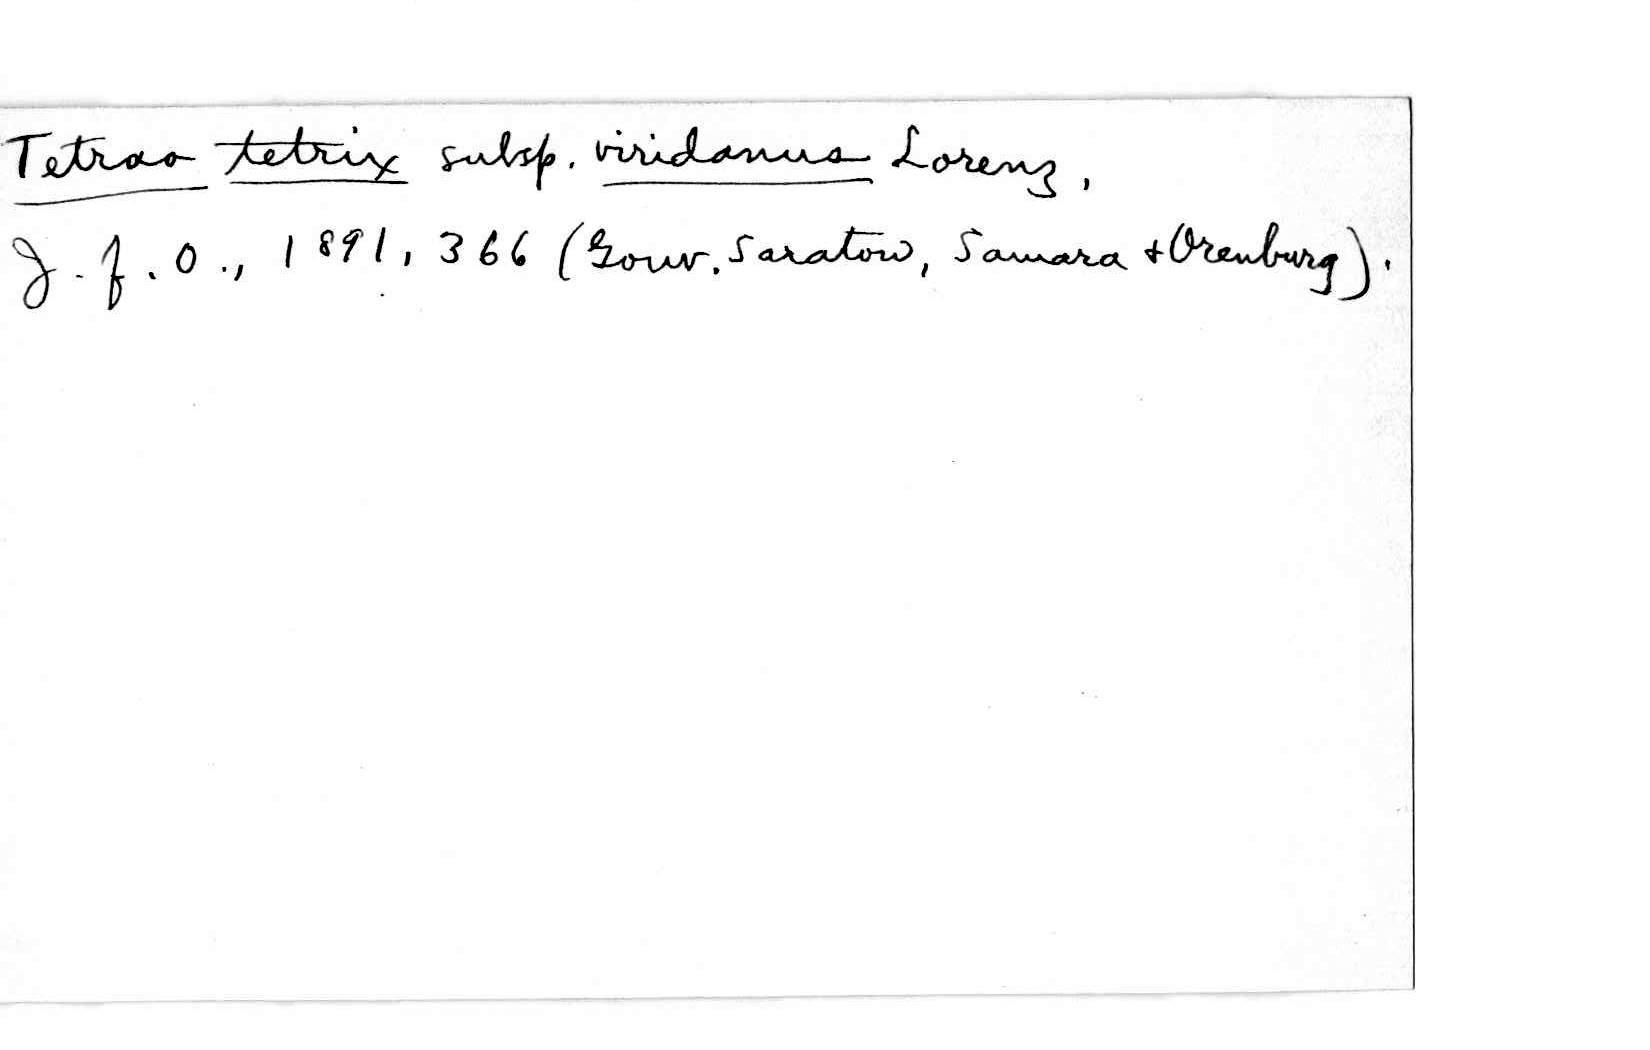 Tetrao tetrix subsp. viridanus Lorenz,
J. f. O., 1891, 366 (Gouv. Saratow, Samara + Orenburg).